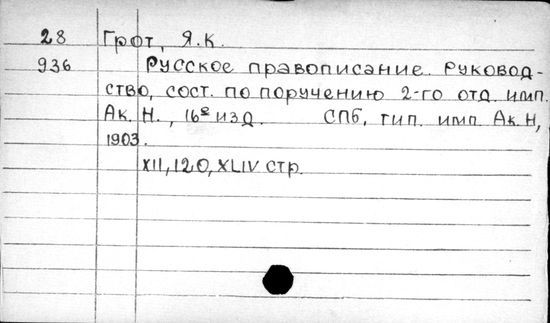 28 Грот, Я.К.
936 Русское правописание. Руковод-
ство, сост. по поручению 2-го отд. имп.
Ак. Н., 16е изд. СПб, тип. имп. Ак. Н,
1903.
XII, 120, XLIV стр.